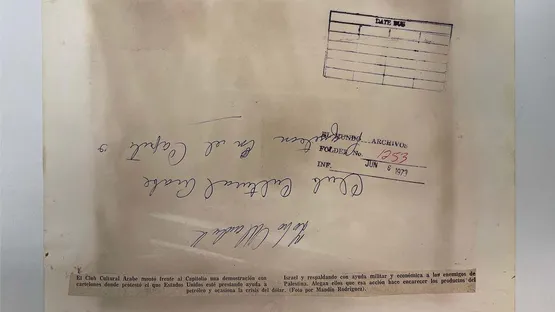 DATE DUE
EL MUNDO ARCHIVO:
FOLDER No. 1253
INF. JUN 6 1979
Club Cultural Arabe
en el Capitolio
El Club Cultural Arabe montó frente al Capitolio una demostración con
cartelones donde protestó si que Estados Unidos esté prestando ayuda a
Israel y respaldando con ayuda militar y económica a los enemigos de
Palestina. Alegan ellos que esa acción hace encarecer los productos del
petróleo y ocasiona la crisis del dólar. (Foto por Mandín Rodríguez).